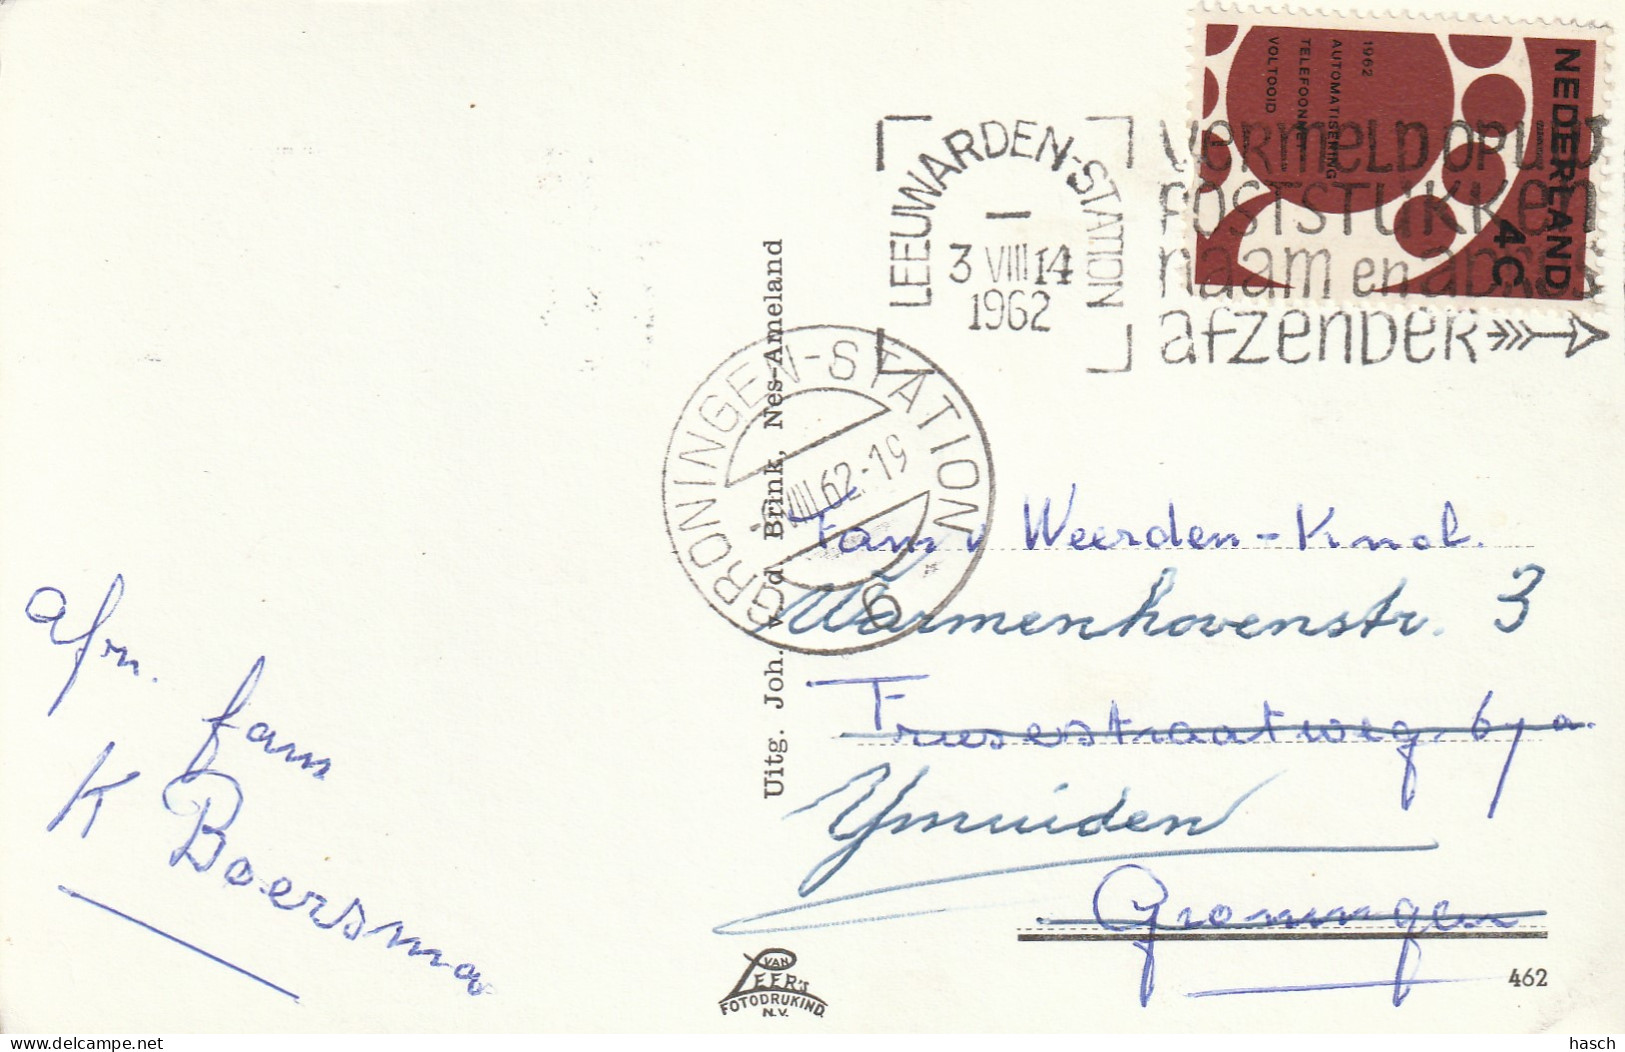 NEDERLAND
4C
1962
AUTOMATISERING
TELEFOONNET
VOLTOOID
LEEUWARDEN-STATION
3 VIII 14
1962
VERMELD OP UW
POSTSTUKKEN
naam en adres
afzender
GRONINGEN-STATION
VIII.62.-19
6
Uitg. Joh. v. d. Brink, Nes-Ameland
Fam v Weerden-Knol.
Warmenhovenstr. 3
Friesestraatweg 67a
Ymuiden
Groningen
afz. fam
K Boersma
VAN
LEER's
FOTODRUKIND.
N.V.
462
delcampe.net
hasch